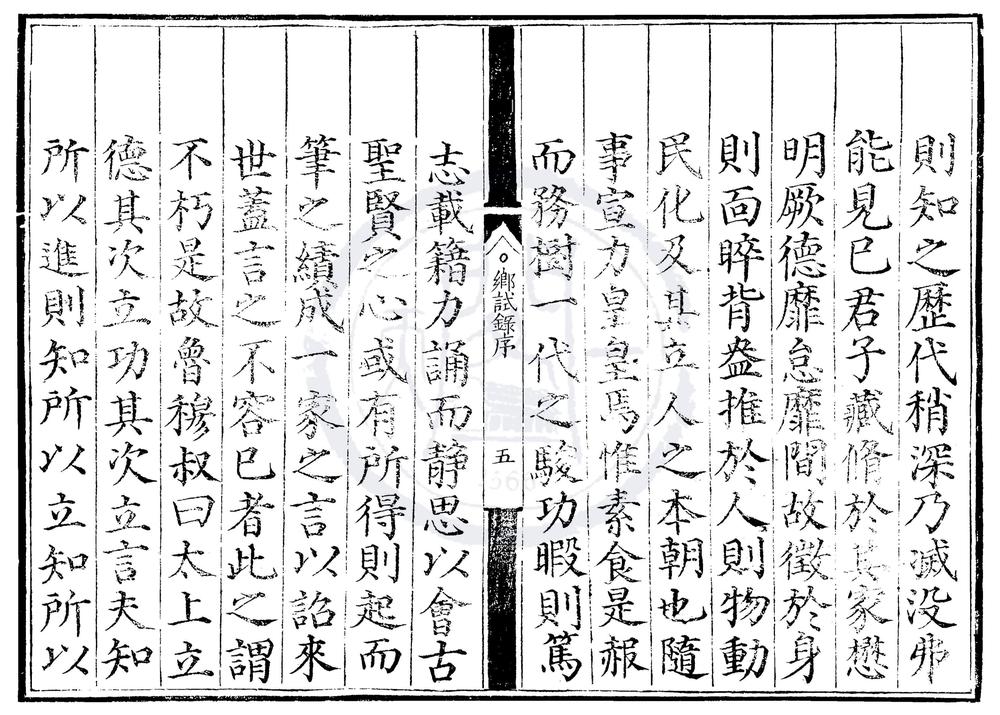 則知之歷代稍深乃滅没弗
能見已君子藏脩於其家懋
明厥德靡怠靡間故徵於身
則面睟背盎推於人則物動
民化及其立人之本朝也隨
事宣力皇皇焉惟素食是赧
而務樹一代之駿功暇則篤
鄉試錄序
五
志載籍力誦而靜思以會古
聖賢之心或有所得則起而
筆之續成一家之言以詔來
世蓋言之不容已者此之謂
不朽是故魯穆叔曰太上立
德其次立功其次立言夫知
所以進則知所以立知所以